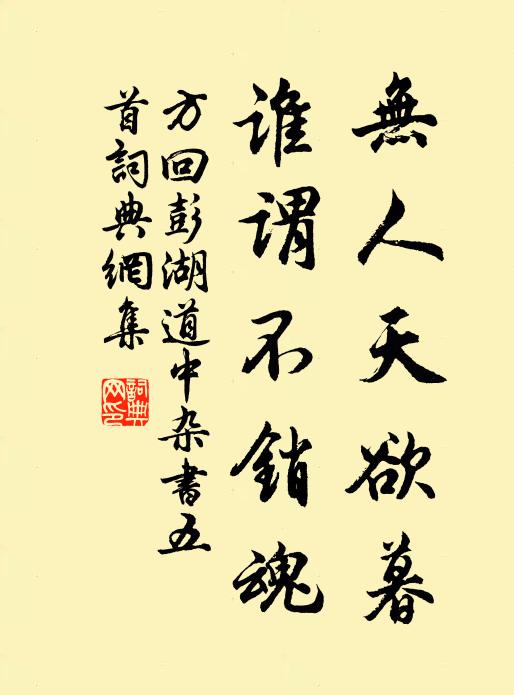 無人天欲暮
誰謂不銷魂
方回彭湖道中杂書五
首詞典網集
詞典
网印